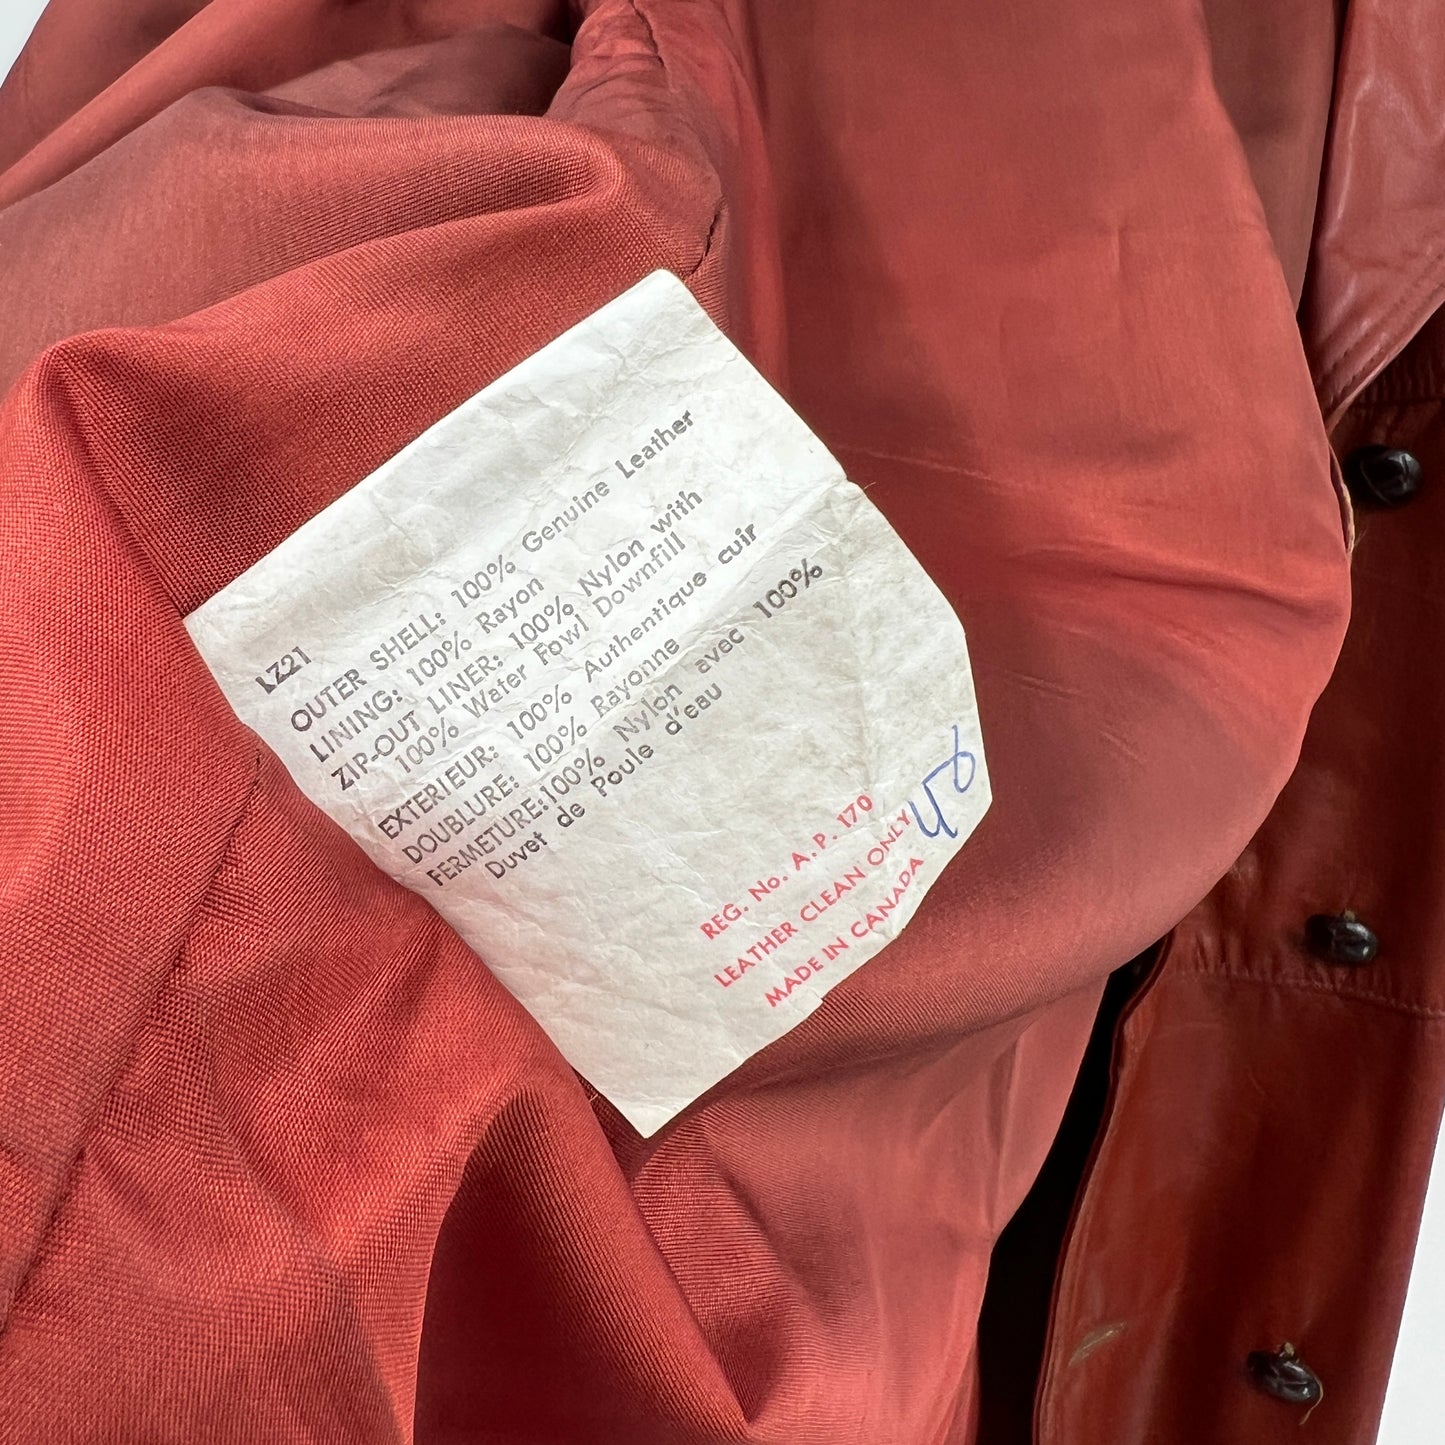 LZ21
OUTER SHELL: 100% Genuine Leather
LINING: 100% Rayon
ZIP-OUT LINER: 100% Nylon with
100% Water Fowl Downfill
EXTERIEUR: 100% Authentique cuir
DOUBLURE: 100% Rayonne
FERMETURE:100% Nylon avec 100%
Duvet de Poule d'eau
REG. No. A. P. 170
LEATHER CLEAN ONLY
MADE IN CANADA